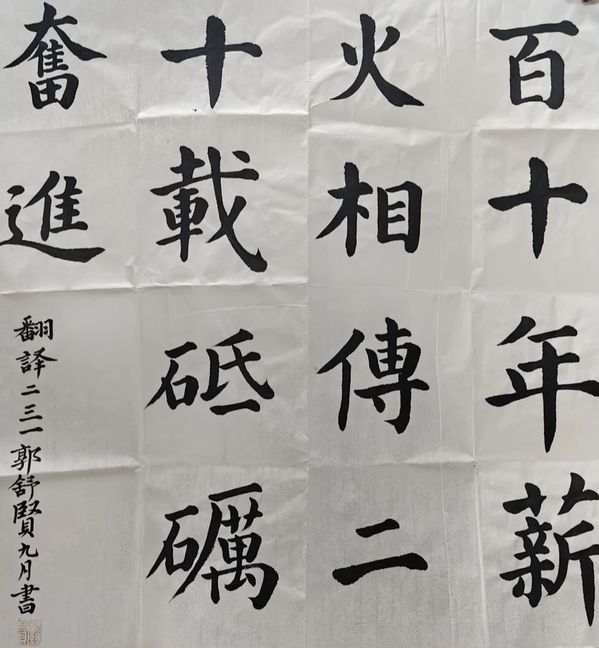 百十年薪
火相傳二
十載砥礪
奮進
翻譯二三一郭舒賢九月書